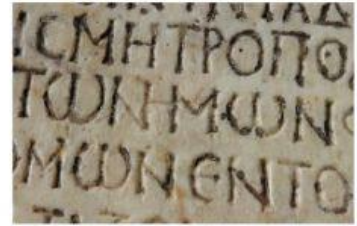 ΙϹΜΗΤΡΟΠΟ
ΤΩΝΗΜΩΝ
ΟΜΩΝΕΝΤΟ